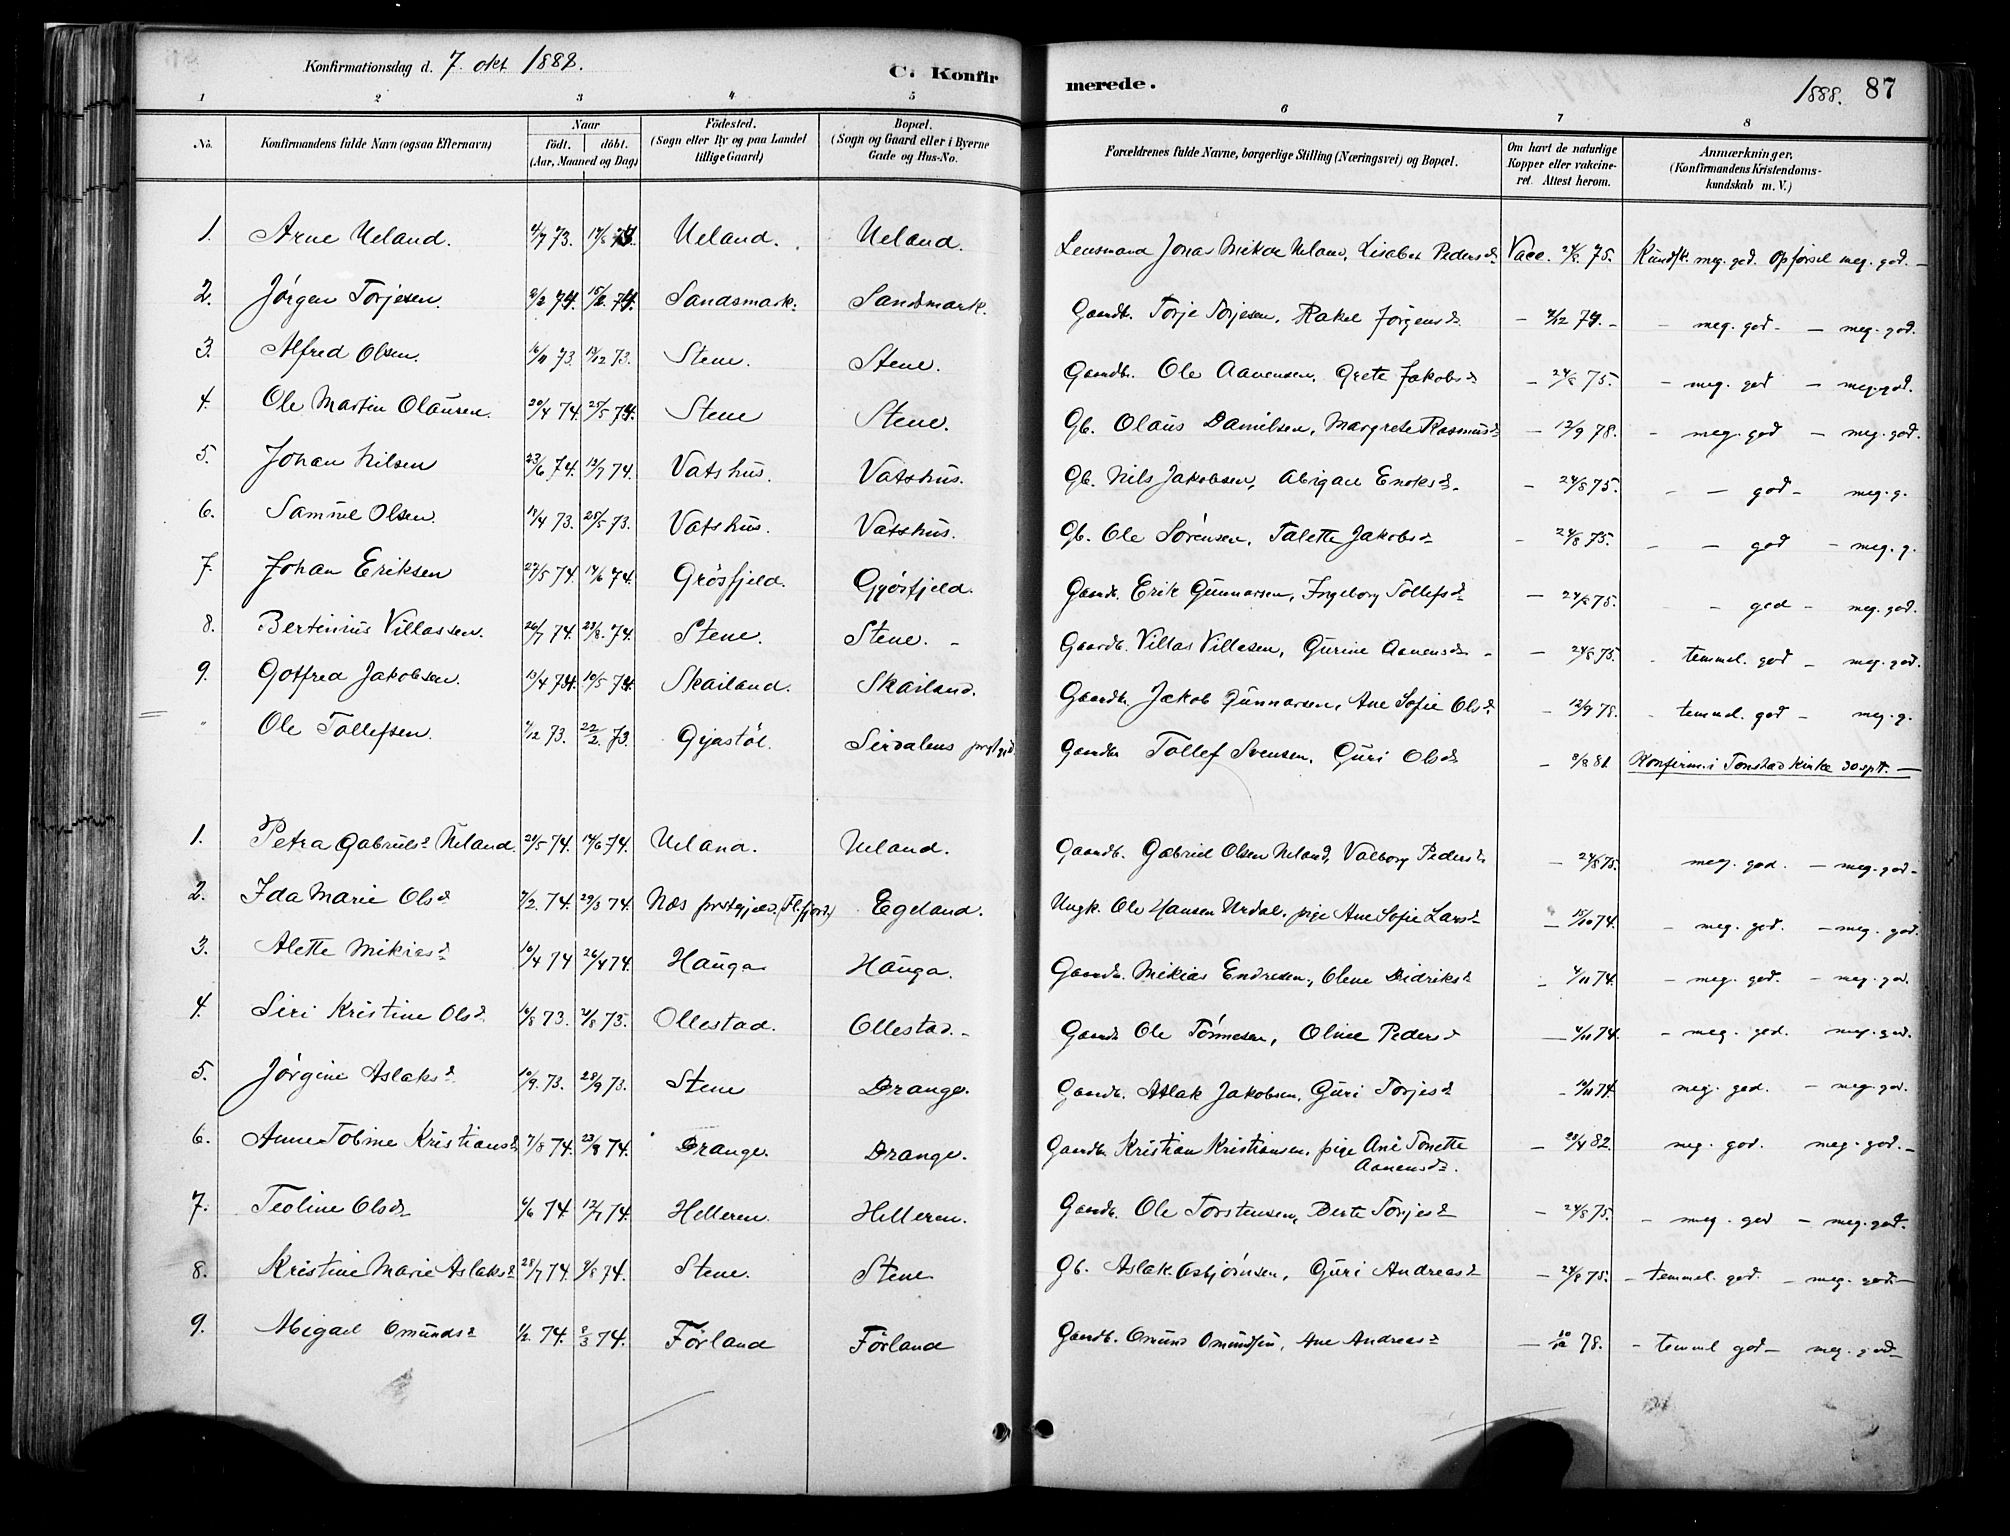 Konfirmationsdag d. 7. okt 1888.
C. Konfir
merede.
1888. 87
1 2 3 4 5 6 7 8
No.
Konfirmandens fulde Navn (ogsaa Efternavn)
Naar
födt. döbt.
(Aar, Maaned og Dag)
Födested.
(Sogn eller By og paa Landet
tillige Gaard)
Bopæl.
(Sogn og Gaard eller i Byerne
Gade og Hus-No.
Forældrenes fulde Navne, borgerlige Stilling (Næringsvei) og Bopæl.
Om havt de naturlige
Kopper eller vakcine-
ret. Attest herom.
Anmærkninger,
(Konfirmandens Kristendoms-
kundskab m. V.)
1. Arne Ueland. 73. Ueland. Ueland. Lensmand Jonas Lisabet Pedersd. Vacc. 24/8 75. Kundsk. meg. god. Opførsel meg. god. —
2. Jörgen Torjesen. 74. 74. Sandsmark. Sandsmark. Gaardb. Torje Torjesen, Rakel Jörgensd. — — meg. god. — meg. god.
3. Alfred Olsen. 16/11 73. 73. Stene. Stene. Gaardb. Ole Aanensen, Grete Jakobsd — 24/8 75. — meg. god — meg. god.
4. Ole Martin Olausen. 20/4 74. 25/5 74. Stene Stene. Gb. Olaus Danielsen, Margrete Rasmusd — 12/9 78. — meg. god — meg. god.
5. Johan Nilsen 23/6 74. 12/7 74. Vatshus. Vatshus. Gb. Nils Jakobsen, Abigael Enoksd. — 24/8 75. — — god — meg. g.
6. Samuel Olsen. 73. 25/5 73. Vatshus. Vatshus. Gb. Ole Sörensen, Talette Jakobsd — 24/8 75. — — god — meg. g.
7. Johan Eriksen 27/5 74. 14/6 74. Grösfjeld. Gyösfjeld. Gaardb. Erik Gunnarsen, Ingeborg Tollefsd — 24/8 75. — god — meg. god.
8. Bertinius Villassen. 26/7 74. 23/8. 74. Stene. Stene. — Gaardb. Villas Villasen, Gurine Aanensd — — 24/8 75. - temmel. god — meg. god.
9. Gotfred Jakobsen. 13/4 74. 10/5 74. Skailand. Skailand. Gaardb. Jakob Gunnarsen, Ane Sofie Olsd. — 12/9 78. - temmel. god — meg. g.
" Ole Tollefsen. 73. 22/2. 73. Gyastöl. Sirdalens prstgjd. Gaardb. Tollef Svensen, Guri Olsd — 81. Konfirm. i Tonstad Kirke 30 sptb. —
1. Petra Gabrielsd Ueland. 74. 14/6 74. Ueland. Ueland. Gaardb. Gabriel Olsen Ueland, Valborg Pedersd. — 24/8 75. meg. god. — meg. god —
2. Ida Marie Olsd 7/2. 74. 29/3 74. Næs prstgjeld. (Fl.fjord) Egeland. Ungk. Ole Hansen Urdal, pige Ane Sofie Larsd — 15/10 74. — meg. god. — meg. god.
3. Alette Mikiasd. 10/4 74 26/4 74. Hauga Hauga. Gaardb. Mikias Endresen, Olene Didriksd — 4/11 74. — meg. god. — meg. god.
4. Siri Kristine Olsd. 73. 73. Ollestad. Ollestad. Gaardb. Ole Tönnesen, Oline Pedersd — 4/11 74. — meg. god. meg. god.
5. Jörgine Aslaksd. 10/9. 73. 28/9 73. Stene Drange. Gaardb. Atlak Jakobsen, Guri Torjesd — 74. meg. god. — meg. god.
6. Anne Tobine Kristiansd. 7/8 74. 74. Drange. Drange. Gaardb. Kristian Kristiansen, pige Ane Tonette
Aanensd. — 82. meg. god. meg. god. —
7. Teoline Olsd 74 12/7 74. Helleren. Helleren. Gaardb. Ole Torstensen, Berte Torjesd — 24/8 75. — meg. god — meg. god.
8. Kristine Marie Aslaksd 28/7 74. 74. Stene. Stene Gb. Aslak Osbjörnsen, Guri Andreasd — 24/8 75. — temmel. god. — meg. god. —
9. Abigael Omundsd 74. 8/3 74. Förland Förland Gaardb. Omund Omundsen, Ane Andreasd — 78. - temmel god — meg. god —